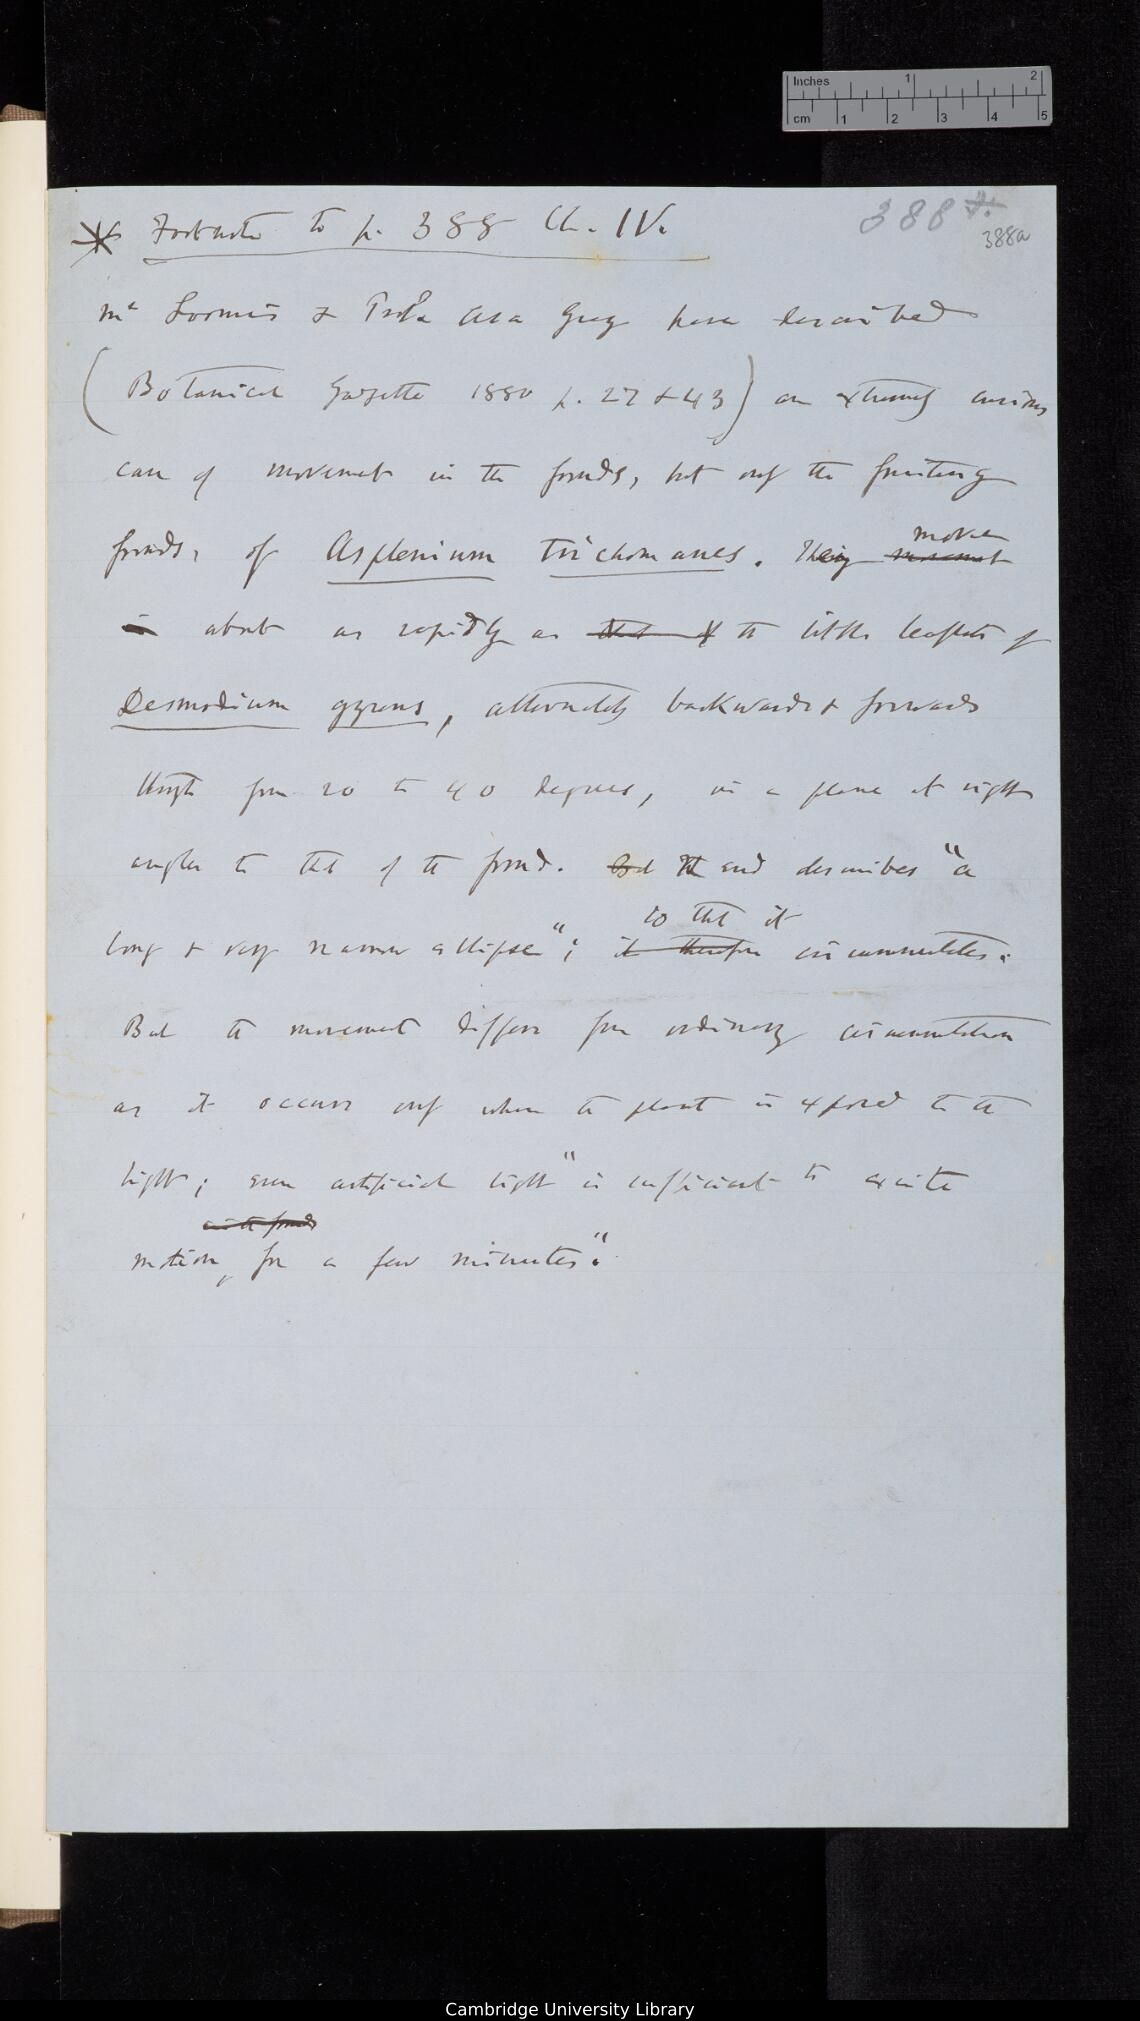 Inches 1 2
cm 1 2 3 4 5
388
388a
* Footnote to p. 388 Ch. IV.
Mr Loomis & Prof. Asa Gray have described
(Botanical Gazette 1880 p. 27 & 43) an extremely curious
case of movement in the fronds, but only the fruiting
fronds, of Asplenium trichomanes. They
move
movement
is about as rapidly as that of the little leaflets of
Desmodium gyrans, alternately backwards & forwards
through from 20 to 40 degrees, in a plane at right
angles to that of the frond. The end describes "a
so that it
long & very narrow ellipse"; it therefore circumnutates.
But the movement differs from ordinary circumnutation
as it occurs only when the plant is exposed to the
light; even artificial light "is sufficient to excite
in the fronds
motion, for a few minutes".
Cambridge University Library